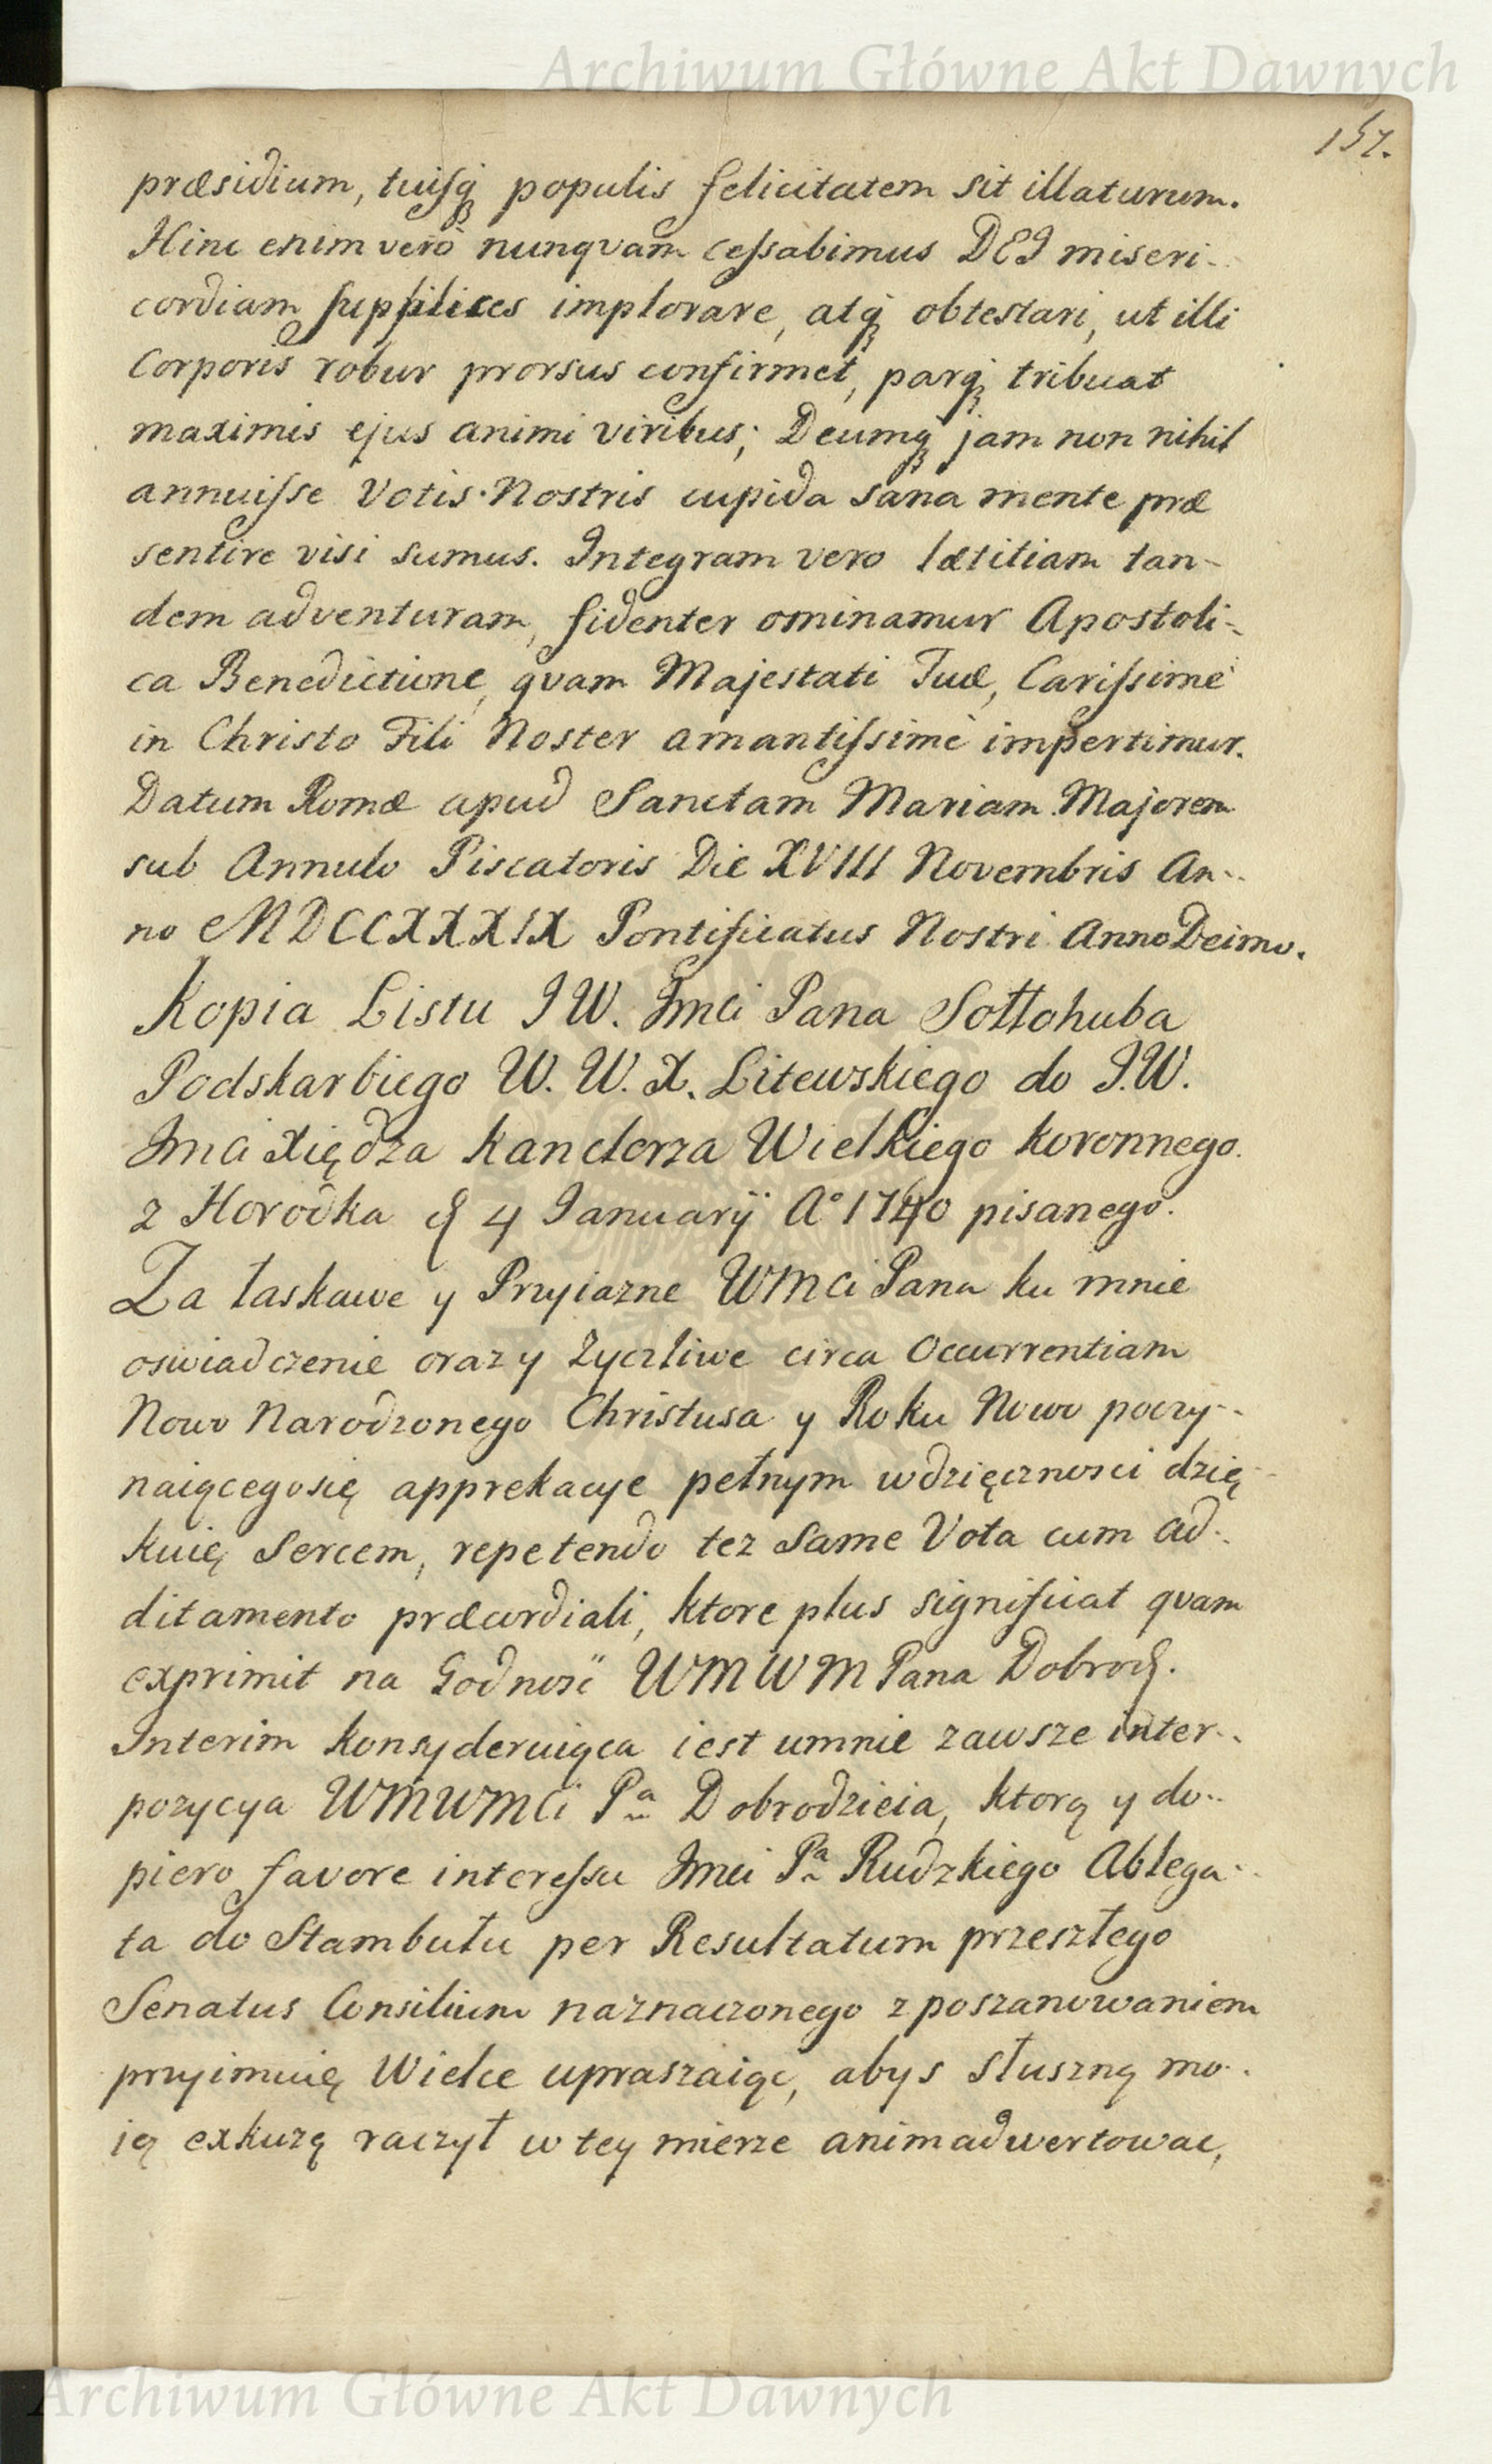 Archiwum Główne Akt Dawnych
157.
præsidium, tuisq́ populis felicitatem sit illaturum.
Hinc enim verò nunqvam cessabimus DEI miseri-
cordiam supplices implorare, atq́ obtestari, ut illi
Corporis robur prorsus confirmet, parq́ tribuat
maximis ejus animi viribus; Deumq́ jam non nihil
annuisse Votis Nostris cupida sana mente præ
sentire visi sumus. Integram vero lætitiam tan-
dem adventuram, fidenter ominamur Apostoli-
ca Benedictione, qvam Majestati Tuæ, Carissime
in Christo Fili Noster amantissimè impertimur.
Datum Romæ apud Sanctam Mariam Majorem
sub Annulo Piscatoris Die XVIII Novembris An-
no MDCCXXXIX Pontificatus Nostri Anno Decimo.
Kopia Listu JW. Jmci Pana Sołłohuba
Podskarbiego W. W. X. Litewskiego do J.W.
Jmci Xiędza Kanclerza Wielkiego Koronnego.
z Horodka d 4 Januarij Aº 1740 pisanego.
Za łaskawe y Przyiazne WMci Pana ku mnie
oswiadczenie oraz y Zyczliwe circa Occurrentiam
Nowo Narodzonego Christusa y Roku Nowo poczy-
naiącego się apprekacye pełnym wdzięcznosci dzię-
kuię Sercem, repetendo tez same Vota cum ad-
ditamento præcordiali, ktore plus significat qvam
exprimit na Godnosć WMWMPana Dobrodz.
Interim konsyderuiąca iest umnie zawsze inter-
pozycya WMWMci Pa Dobrodzieia, ktorą y do-
piero favore interessu Jmci Pa Rudzkiego Ablega-
ta do Stambułu per Resultatum przeszłego
Senatus Consilium naznaczonego z poszanowaniem
przyimuię Wielce upraszaiąc, abys słuszną mo-
ię exkuzę raczył w tey mierze animadwertowac,
Archiwum Główne Akt Dawnych